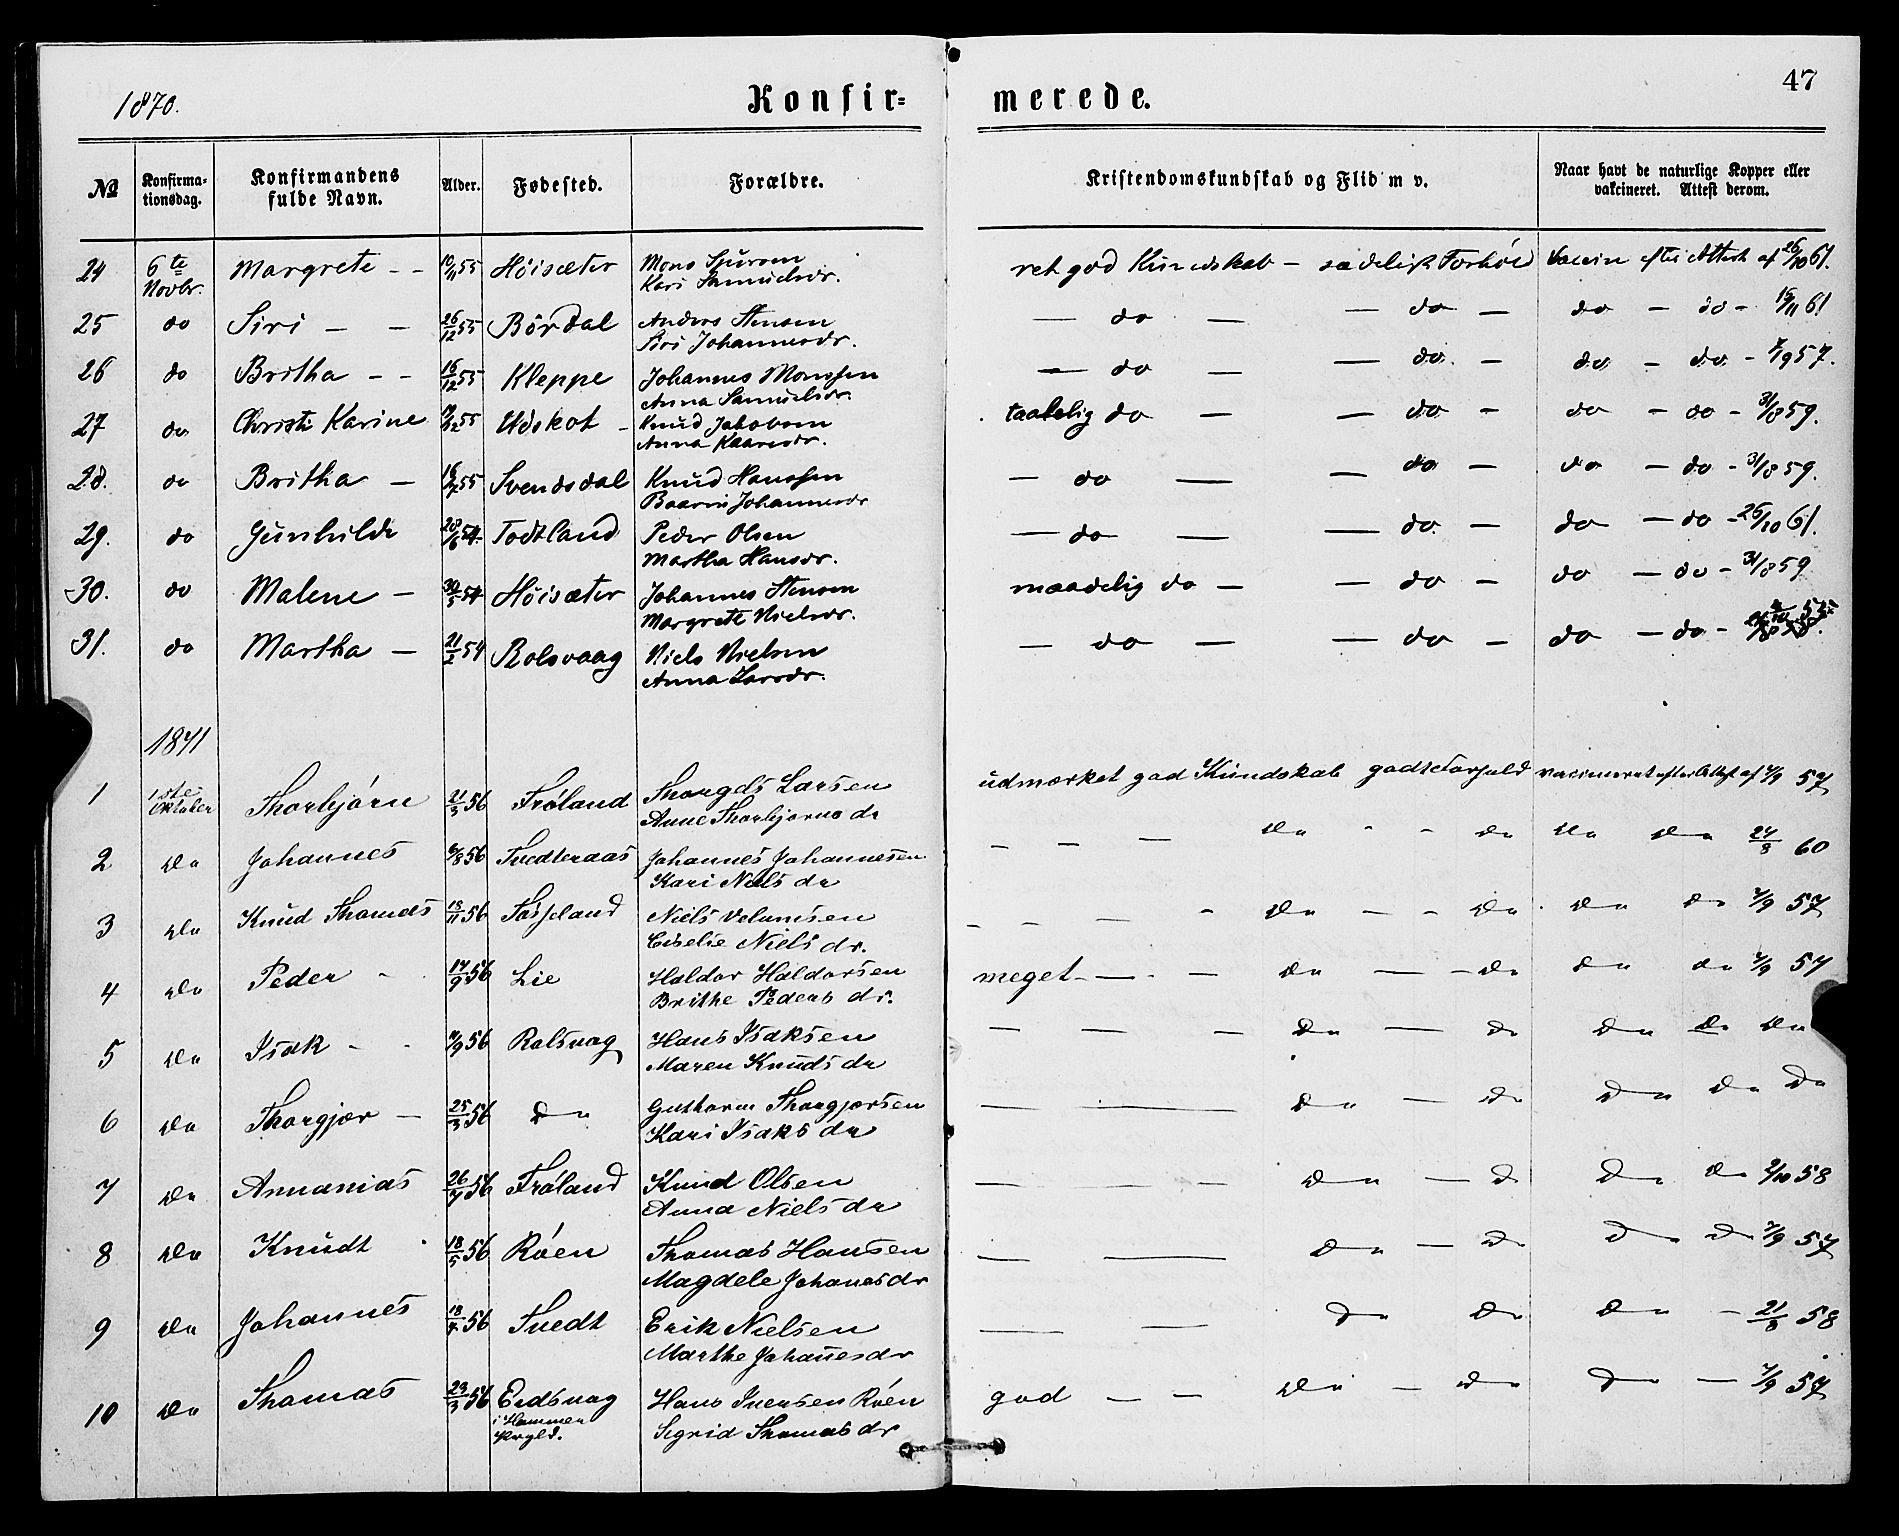 1870. Konfir= merede. 47
№ Konfirma-tionsdag. Konfirmandens fulde Navn. Alder. Fødested. Forældre. Kristendomskundskab og Flid m v. Naar havt de naturlige Kopper eller vakcineret. Attest derom.
24 6te Novbr. Margrete - - 10/11 55 Høisæter Mons Kari Samuelsdr. ret god Kundskab - sædelig Forhold Vaccin efter Attest af 26/10 61.
25 do Siri - - 26/12 55 Børdal Anders Stensen Siri Johannesdr. - do - - do - do - do - 61
26 do Britha - - 16/12 55 Kleppe Johannes Monssen Anna Samuelsdr. - do - - do. - do - do - 57.
27 do Christi Karine 55 Udskot - Knud Jakobsen Anna Kaaresdr. taalelig do - - do - do - do - 31/8 59.
28. do Britha - 55 Svendsdal Knud Hanssen Baarni Johannesdr - do - - do - do - do - 31/8 59.
29. do Gunhilde 28/6 54. Todtland Peder Olsen Martha Hansdr. - do - - do. - do - do - 26/10 61.
30. do Malene - 30/5 54 Høisæter Johannes Stensen Margrete Nielsdr. maadelig do - - do - do - do - 31/8 59
31. do Martha - 21/2 54 Rolsvaag Niels Nielsen Anna Larsdr. - do - - do - do - do -
1871
1 1ste Oktober Thorbjørn 21/3 56 Frøland Larsen Anne Thorbjørns dr udmærket god Kundskab godt Forhold vaccineret efter Attest af 7/9 57
2 do Johannes 6/8 56 Tvedteraas Johannes Johannesen Kari Niels dr - - - do - - do do do 24/8 60
3 do Knud Thomas 18/11 56 Søfteland Niels Velomsen Ciselie Niels dr. - - - do - - do do do 7/9 57
4 do Peder - 14/9 56 Lie Haldor Haldorsen Brithe Peders dr. meget - - - do - - do do do 7/9 57
5 do Isak - - 56 Rolsvag Hans Isaksen Maren Knuds dr - - - do - do do do do
6 do Thorgjer - 25/3 56 do Guthorm Thorgjersen Kari Isaks dr - - do - do do do do
7 do Annanias 26/7 56 Frøland Knud Olsen Anna Niels dr - - - do - do do do 2/10 58
8 do Knudt 18/5 56 Røen Thomas Hansen Magdele Johanesdr - - do - do do do 7/9 57
9 do Johannes 56 Tvedt Erik Nielsen Marthe Johanesdr - - do do do - 21/8 58
10 do Thomas 23/3 56 Eidsvag i Hammer Prgld. Hans Iversen Røen Sigrid Thomasdr god - - do - do do - 7/9 57